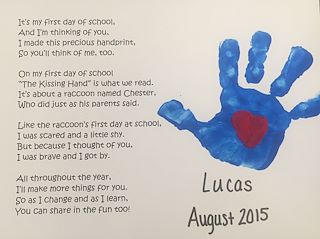 It's my first day of school,
And I'm thinking of you,
I made this precious handprint,
So you'll think of me, too.
On my first day of school
"The Kissing Hand" is what we read.
It's about a raccoon named Chester,
Who did just as his parents said.
Like the raccoon's first day at school,
I was scared and a little shy.
But because I thought of you,
I was brave and I got by.
All throughout the year,
I'll make more things for you.
So as I change and as I learn,
You can share in the fun too!
Lucas
August 2015